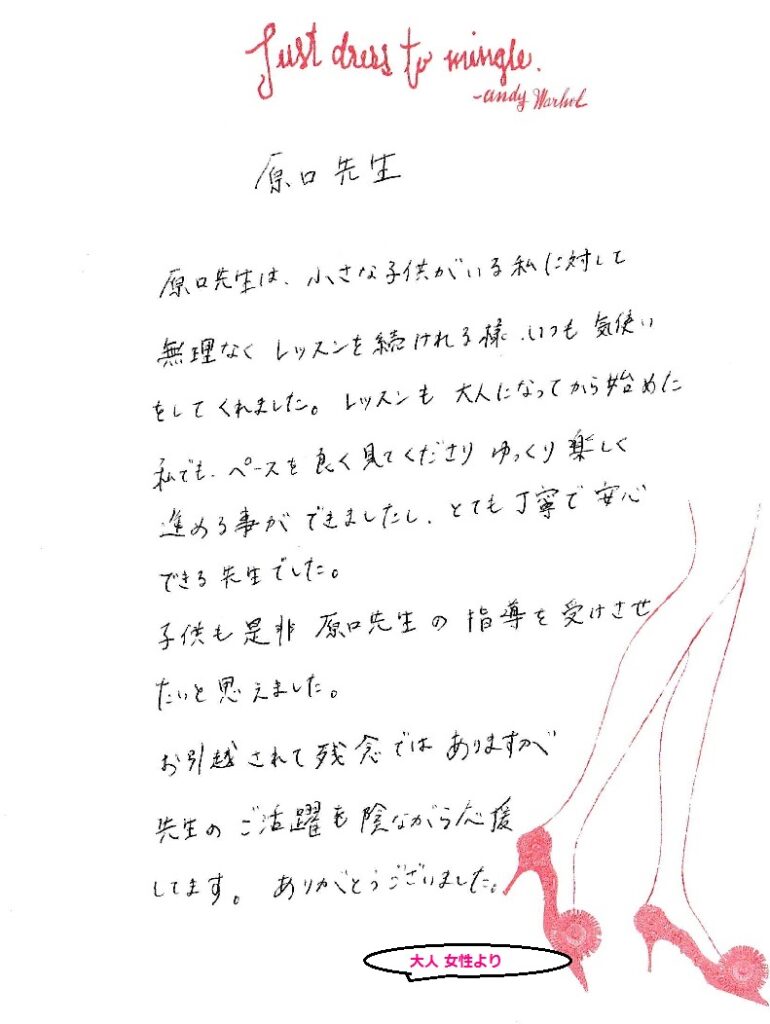 Just dress to mingle.
-andy Warhol
原口先生
原口先生は、小さな子供がいる私に対して
無理なく レッスンを続けれる様、いつも 気使い
をしてくれました。レッスンも 大人になってから始めた
私でも、ペースを良く見てくださり ゆっくり 楽しく
進める事ができましたし、とても丁寧で安心
できる先生でした。
子供も是非 原口先生の指導を受けさせ
たいと思えました。
お引越されて残念ではありますが
先生のご活躍を陰ながら応援
してます。 ありがとうございました。
大人 女性より